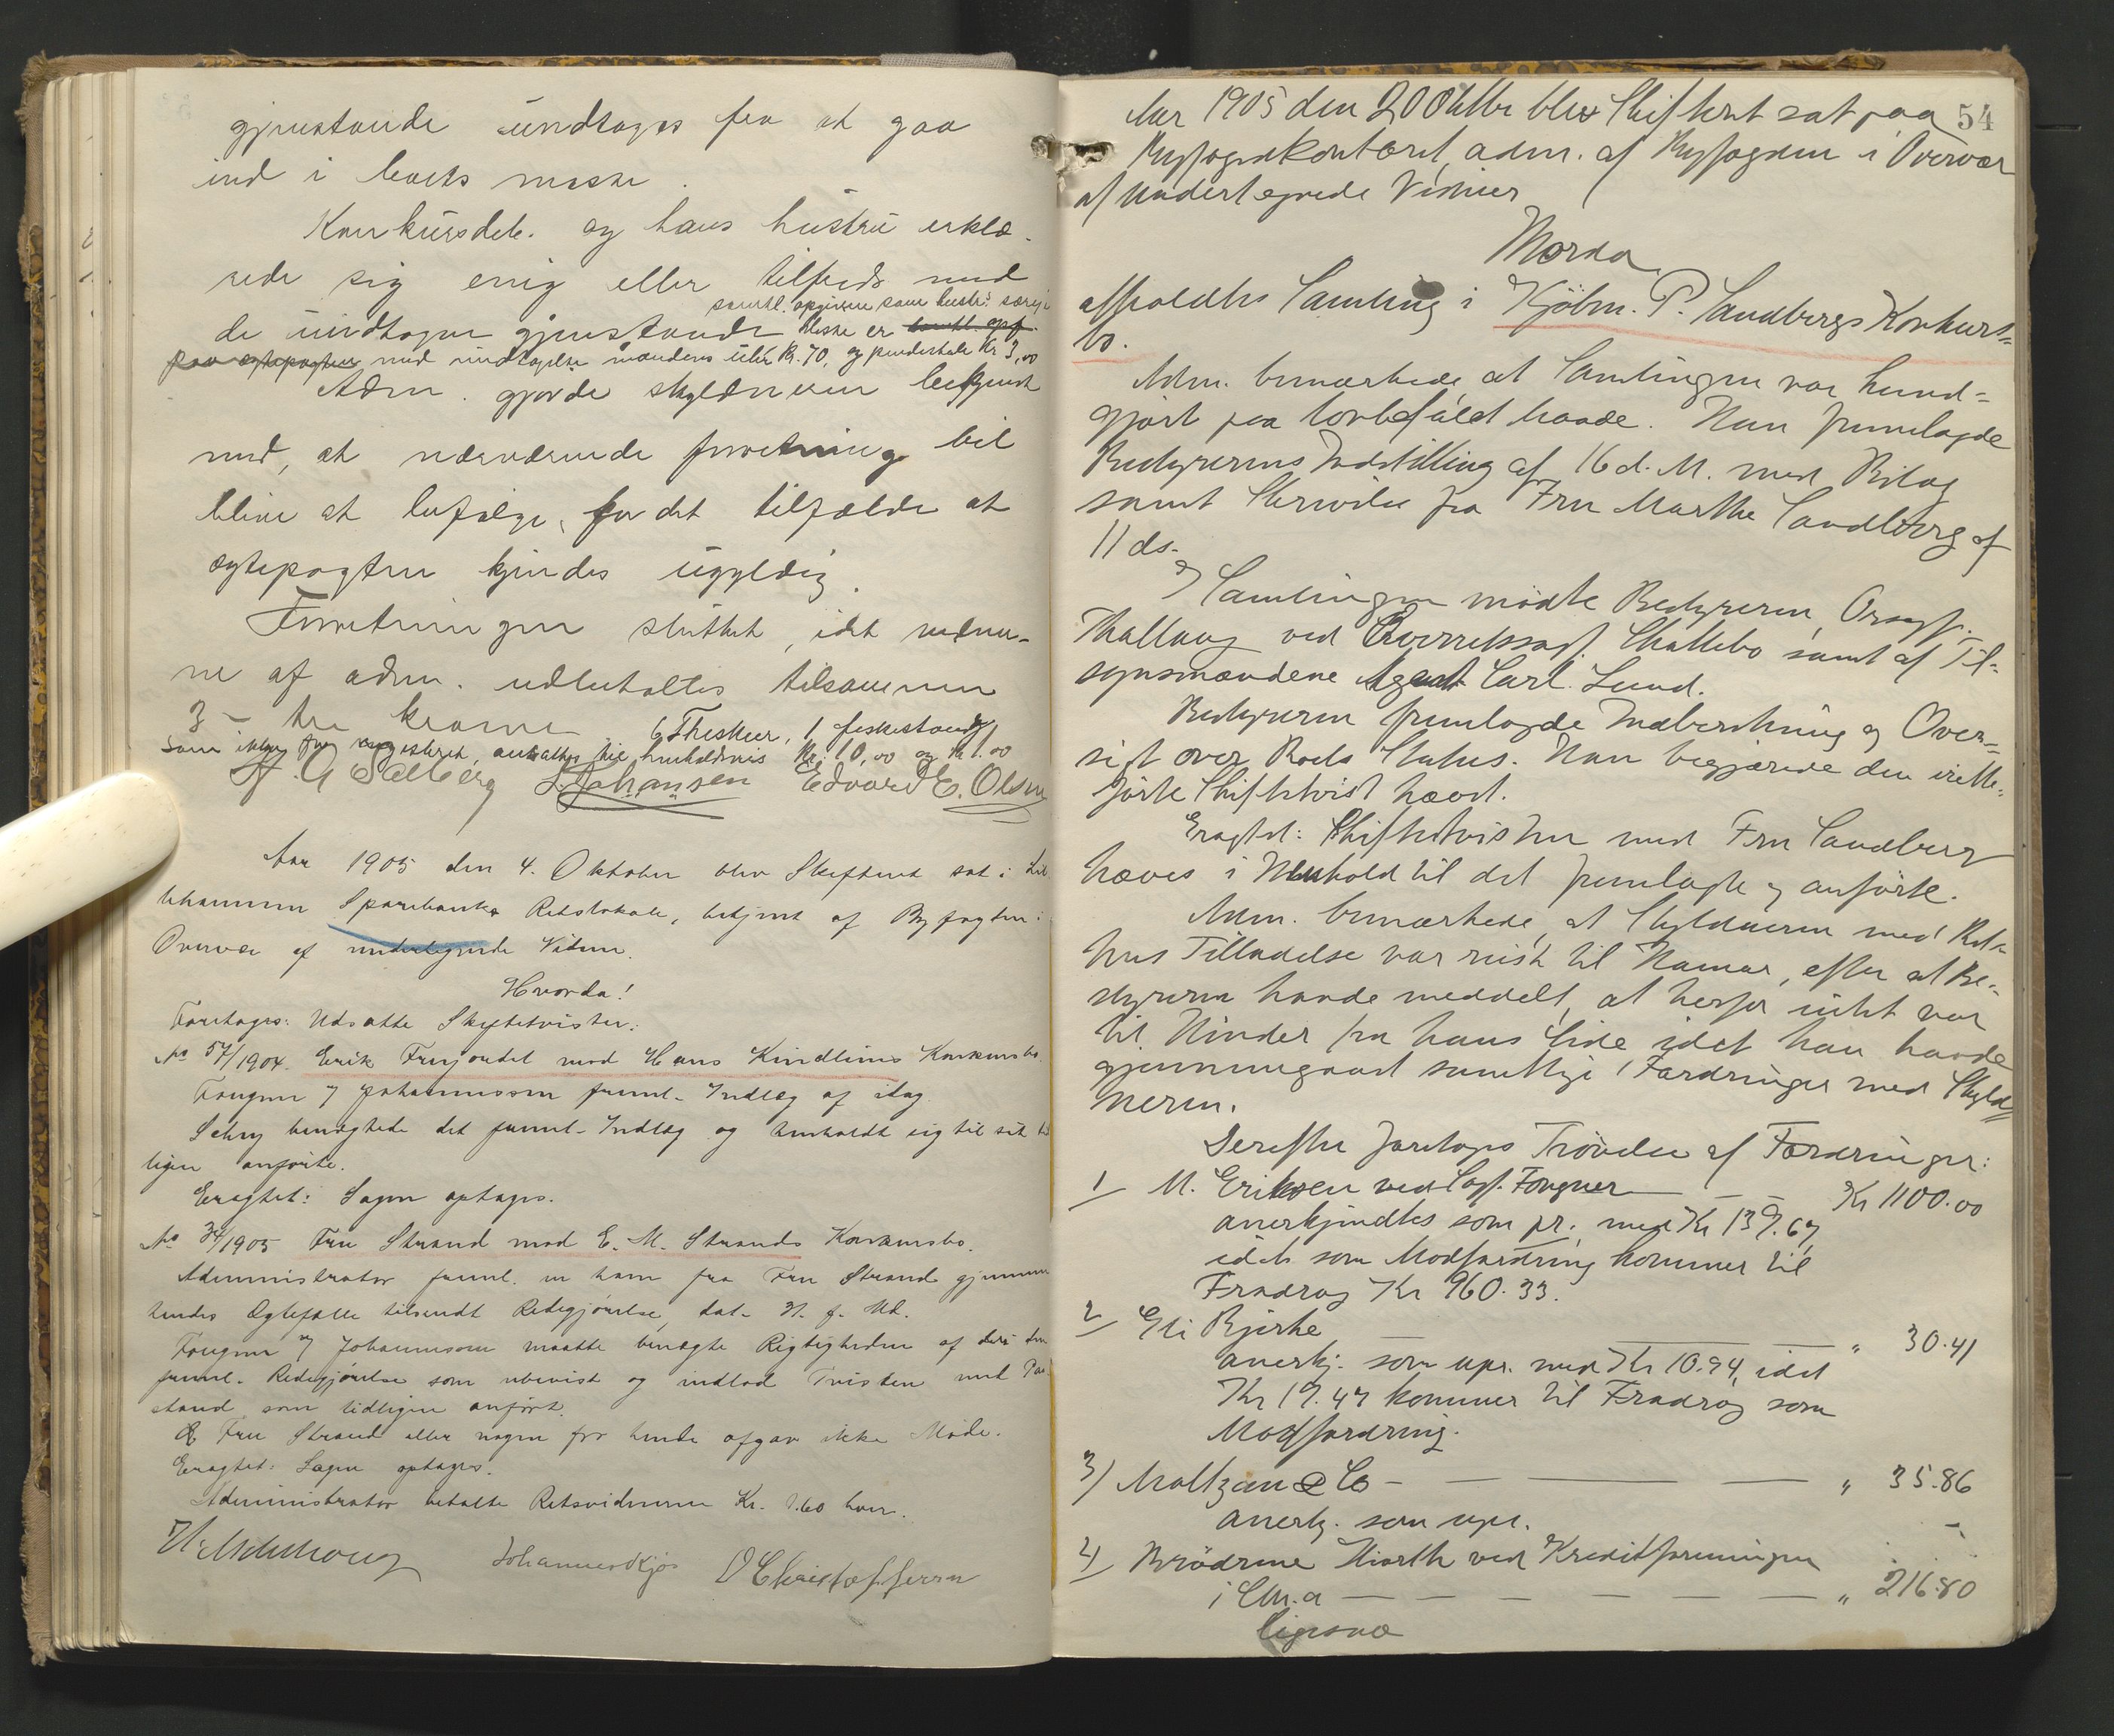 gjenstande undtages fra at gaa
ind i boets masse.
Konkursdeb. og hans hustru erklæ-
rede sig enig eller tilfreds med
samtl. opgivne som hustr. særeje
de undtagne gjenstande er
med undtagelse mandens uhr kr. 70, og Kr 3,00
Adm. gjorde skyldneren bekjendt
med, at nærværende forretning vil
blive at befølge, for det tilfælde at
ægtepagten kjendes ugyldig.
Forretningen sluttet, idet vidner-
ne af adm. udbetaltes tilsammen
3 – tre kroner 6 Theskeer, 1
som ikke før registeret, ansattes til henholdsvis Kr. 10,00 og Kr 1.00
A. G Salberg L. Johansen Edvard E. Olsen
Aar 1905 den 4. Oktober blev Skifteret sat i Lil-
lehammer Sparebanks Retslokale, betjent af Byfogden i
Overvær af undertegnede Vidner.
Hvorda!
Foretages: Udsatte Skiftetvister:
No 57/1904. Erik Frujordet mod Hans Kindlins Konkursbo.
Fougner & Johannessen freml. Indlæg af idag.
Schry benægtede det freml. Indlæg og henholdt sig til sit tid-
ligere anførte.
Eragtet: Sagen optages.
No 34/1905 Fru Strand mod E. M. Strands Konkursbo.
Administrator freml. en ham fra Fru Strand gjennem
hendes Ægtefælle tilsendt Redegjørelse, dat. 21. f. Md.
Fougner & Johannessen maatte benægte Rigtigheden af den
freml. Redegjørelse som ubevist og indlod Tvisten med Paa-
stand som tidligere anført.
Fru Strand eller nogen for hende afgav ikke Møde.
Eragtet: Sagen optages.
Administrator betalte Retsvidnerne Kr. 1.60 hver.
Johannes Skjøs O Christoffersen
54
Aar 1905 den 20 Oktbr blev Skifteret sat paa
Byfogedkontoret, adm. af Byfogden i Overvær
af undertegnede Vidner
Hvorda
afholdtes Samling i Kjöbm. P. Sandbergs Konkurs-
bo.
Adm. bemærkede at Samlingen var kund-
gjort paa lovbefalet Maade. Han fremlagde
Bestyrerens Indstilling af 16 d. M. med Bilag
samt Skrivelse fra Fru Marthe Sandberg af
11 ds.
I Samlingen mödte Bestyreren, Orsagf.
Thallaug ved Overretssagf. Skattebo samt af Til-
synsmændene Agent Carl Lund.
Bestyreren fremlagde Indberetning og Over-
sigt over Boets Status. Han begjærede den irette-
förte Skiftetvist hævet.
Eragtet: Skiftetvisten med Fru Sandberg
hæves i Henhold til det fremlagte og anförte.
Adm. bemærkede, at Skyldneren med Ret-
tens Tilladelse var reist til Hamar, efter at Be-
styreren havde meddelt, at herfor intet var
til Hinder fra hans Side idet han havde
gjennemgaaet samtlige Fordringer med Skyld-
neren.
Derefter foretoges Prövelse af Fordringer:
1/ M. Eriksen ved Sagf. Fougner — — Kr 1100.00
anerkjendtes som pr. med Kr 139.67,
idet som Modfordring kommer til
Fradrag Kr 960.33.
2/ Eli Bjerke — — " 30.41
anerkj. som upr. med Kr 10.94, idet
Kr 19.47 kommer til Fradrag som
Modfordring.
3) Maltzau & Co — — — — " 35.86
anerkj. som upr.
4/ Brödrene Hiorth ved Kreditforeningen
i Chr.a — — — — — — " 216.80
ligesaa